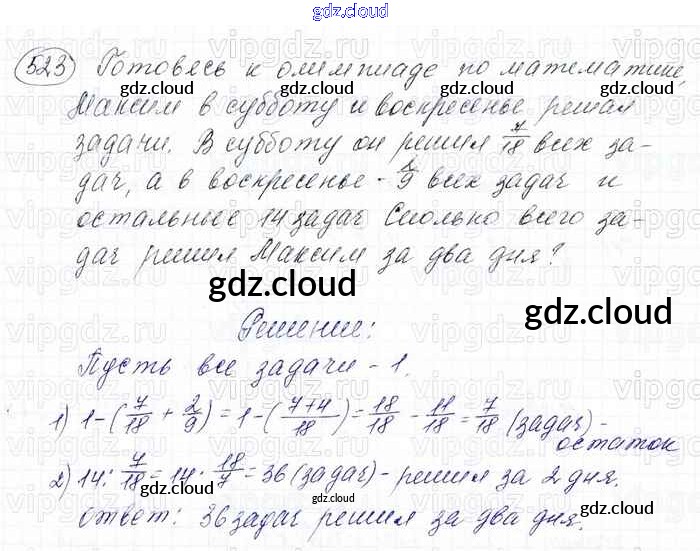 gdz.cloud
523 Готовясь к олимпиаде по математике,
Максим в субботу и воскресенье решал
задачи. В субботу он решил 7/18 всех за-
дач, а в воскресенье - 2/9 всех задач и
остальные 14 задач Сколько всего за-
дач решил Максим за два дня?
gdz.cloud
gdz.cloud
gdz.cloud
Решение:
gdz.cloud
Пусть все задачи - 1.
1) 1-(7/18 + 2/9) = 1-(7+4/18) = 18/18 - 11/18 = 7/18 (задач) -
остаток
2) 14: 7/18 = 14 · 18/7 = 36 (задач) - решил за 2 дня.
gdz.cloud
gdz.cloud
ответ: 36 задач решил за два дня.
gdz.cloud